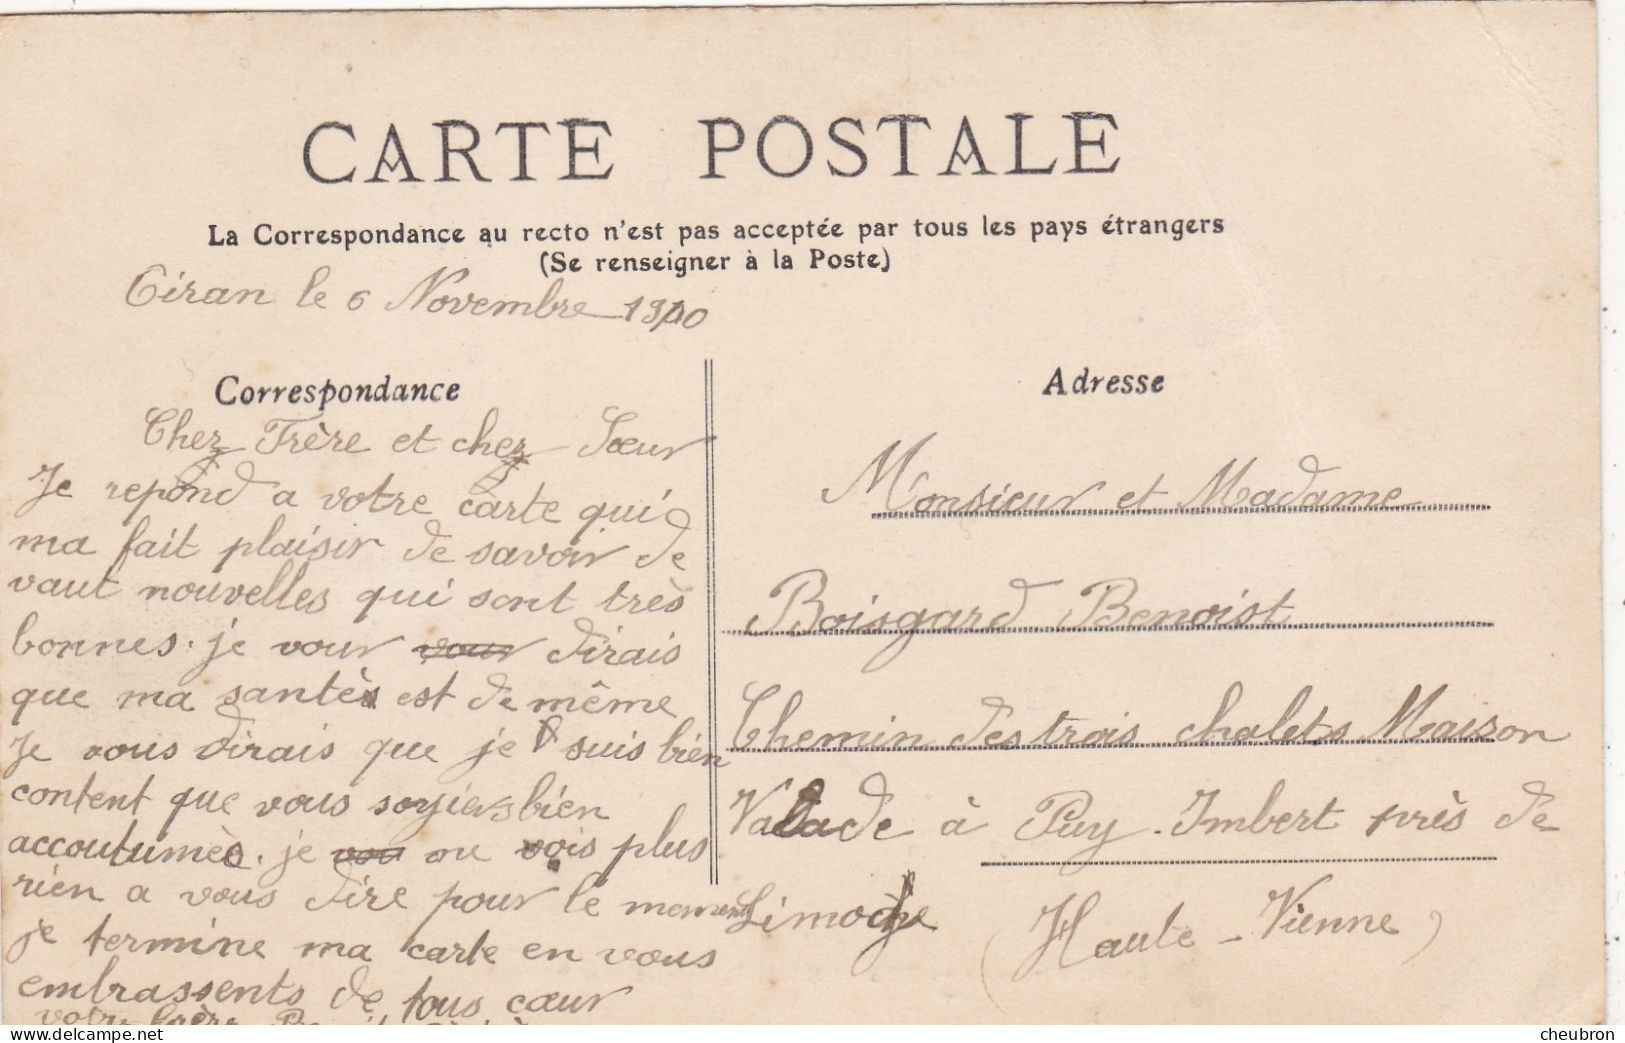 CARTE POSTALE
La Correspondance au recto n'est pas acceptée par tous les pays étrangers
(Se renseigner à la Poste)
Ciran le 6 Novembre 1910
Correspondance
Cher Frère et cher Sœur
Je repond a votre carte qui
ma fait plaisir de savoir de
vaut nouvelles qui sont très
bonnes. je vour vour dirais
que ma santès est de même
Je vous dirais que je suis bien
content que vous soyiers bien
accoutumès. je vou ne vois plus
rien a vous dire pour le moment
je termine ma carte en vous
embrassents de tous cœur
votre frère
Adresse
Monsieur et Madame
Boisgard Benoist
Chemin des trois chalets Maison
Valade à Puy-Imbert près de
Limoge (Haute-Vienne)
cheubron